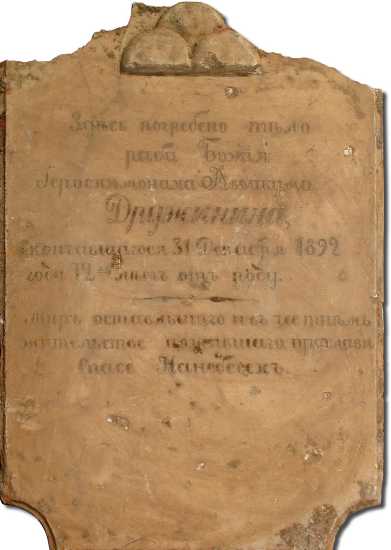 Здѣсь погребено тѣло
раба Божія
Іеросхимонаха Аввакума
Дружинина,
скончавшагося 31 Декабря 1892
года 72 лѣтъ отъ роду.
Миръ оставльшаго и въ
жительство
Спасе